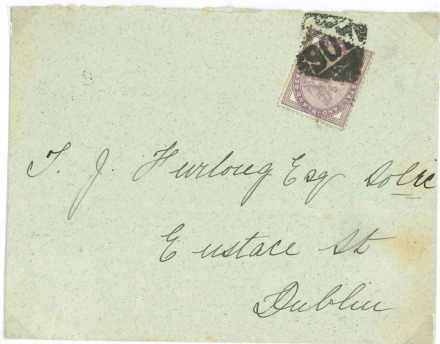 90
T. J. Furlong Esq Solr
Eustace St
Dublin